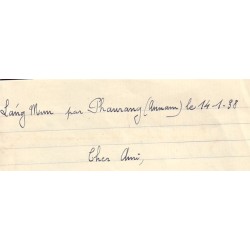 Láng Mun par Phanrang (Annam) le 14-1-38
Cher Ami,